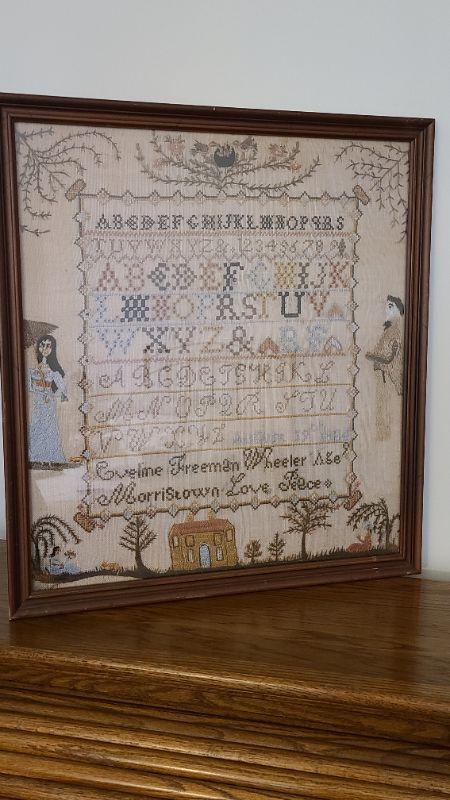 ABCDEFGHIJKLMNOPQRS
TUVWXYZ& 1234567890
ABCDEFGHIJK
LMNOPRSTUV
WXYZ&
ABCDEFGHIKL
MNOPQR STU
VWXYZ August
Eveline Freeman Wheeler
Morristown Love Peace